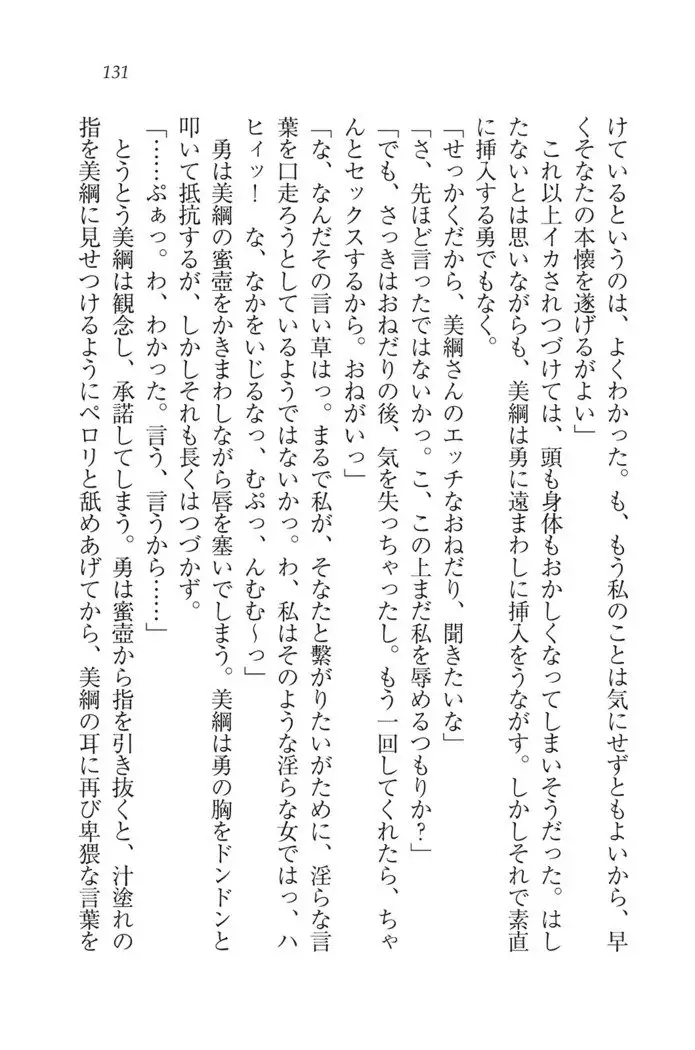 131
けているというのは、よくわかった。も、もう私のことは気にせずともよいから、早
くそなたの本懐を遂げるがよい」
これ以上イカされつづけては、頭も身体もおかしくなってしまいそうだった。はし
たないとは思いながらも、美綱は勇に遠まわしに挿入をうながす。しかしそれで素直
に挿入する勇でもなく。
「せっかくだから、美綱さんのエッチなおねだり、聞きたいな」
「さ、先ほど言ったではないかっ。こ、この上まだ私を辱めるつもりか?」
「でも、さっきはおねだりの後、気を失っちゃったし。もう一回してくれたら、ちゃ
んとセックスするから。おねがいっ」
「な、なんだその言い草はっ。まるで私が、そなたと繋がりたいがために、淫らな言
葉を口走ろうとしているようではないかっ。わ、私はそのような淫らな女ではっ、ハ
ヒィッ! な、なかをいじるなっ、むぷっ、んむむ〜っ」
勇は美綱の蜜壺をかきまわしながら唇を塞いでしまう。美綱は勇の胸をドンドンと
叩いて抵抗するが、しかしそれも長くはつづかず。
「……ぷぁっ。わ、わかった。言う、言うから……」
とうとう美綱は観念し、承諾してしまう。勇は蜜壺から指を引き抜くと、汁塗れの
指を美綱に見せつけるようにペロリと舐めあげてから、美綱の耳に再び卑猥な言葉を